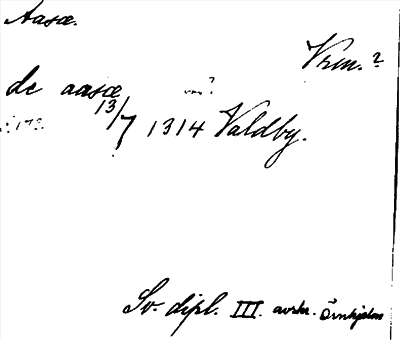 Aasæ.
Vrm. ?
de aasæ
13/7 1314 Valdby.
Sv. dipl. III. avskr. Örnhjelms